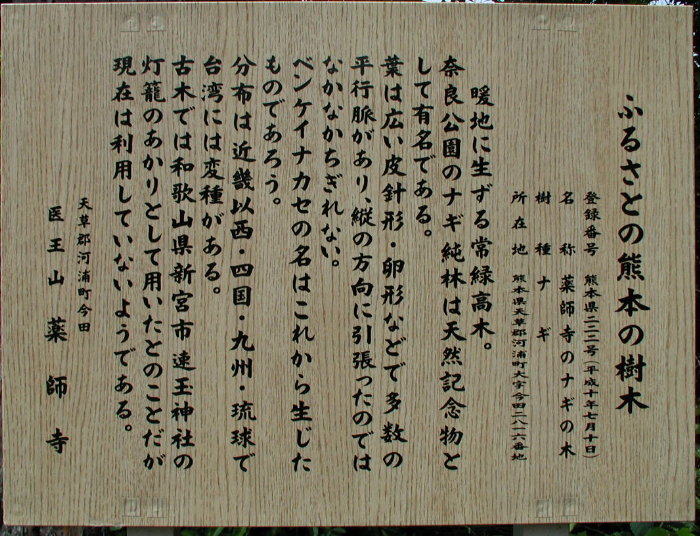 ふるさとの熊本の樹木
登録番号 熊本県二二二号(平成十年七月十日)
名称 薬師寺のナギの木
樹種 ナギ
所在地 熊本県天草郡河浦町大字今田二八一六番地
暖地に生ずる常緑高木。
奈良公園のナギ純林は天然記念物と
して有名である。
葉は広い皮針形・卵形などで多数の
平行脈があり、縦の方向に引張ったのでは
なかなかちぎれない。
ベンケイナカセの名はこれから生じた
ものであろう。
分布は近畿以西・四国・九州・琉球で
台湾には変種がある。
古木では和歌山県新宮市速玉神社の
灯籠のあかりとして用いたとのことだが
現在は利用していないようである。
天草郡河浦町今田
医王山 薬師寺